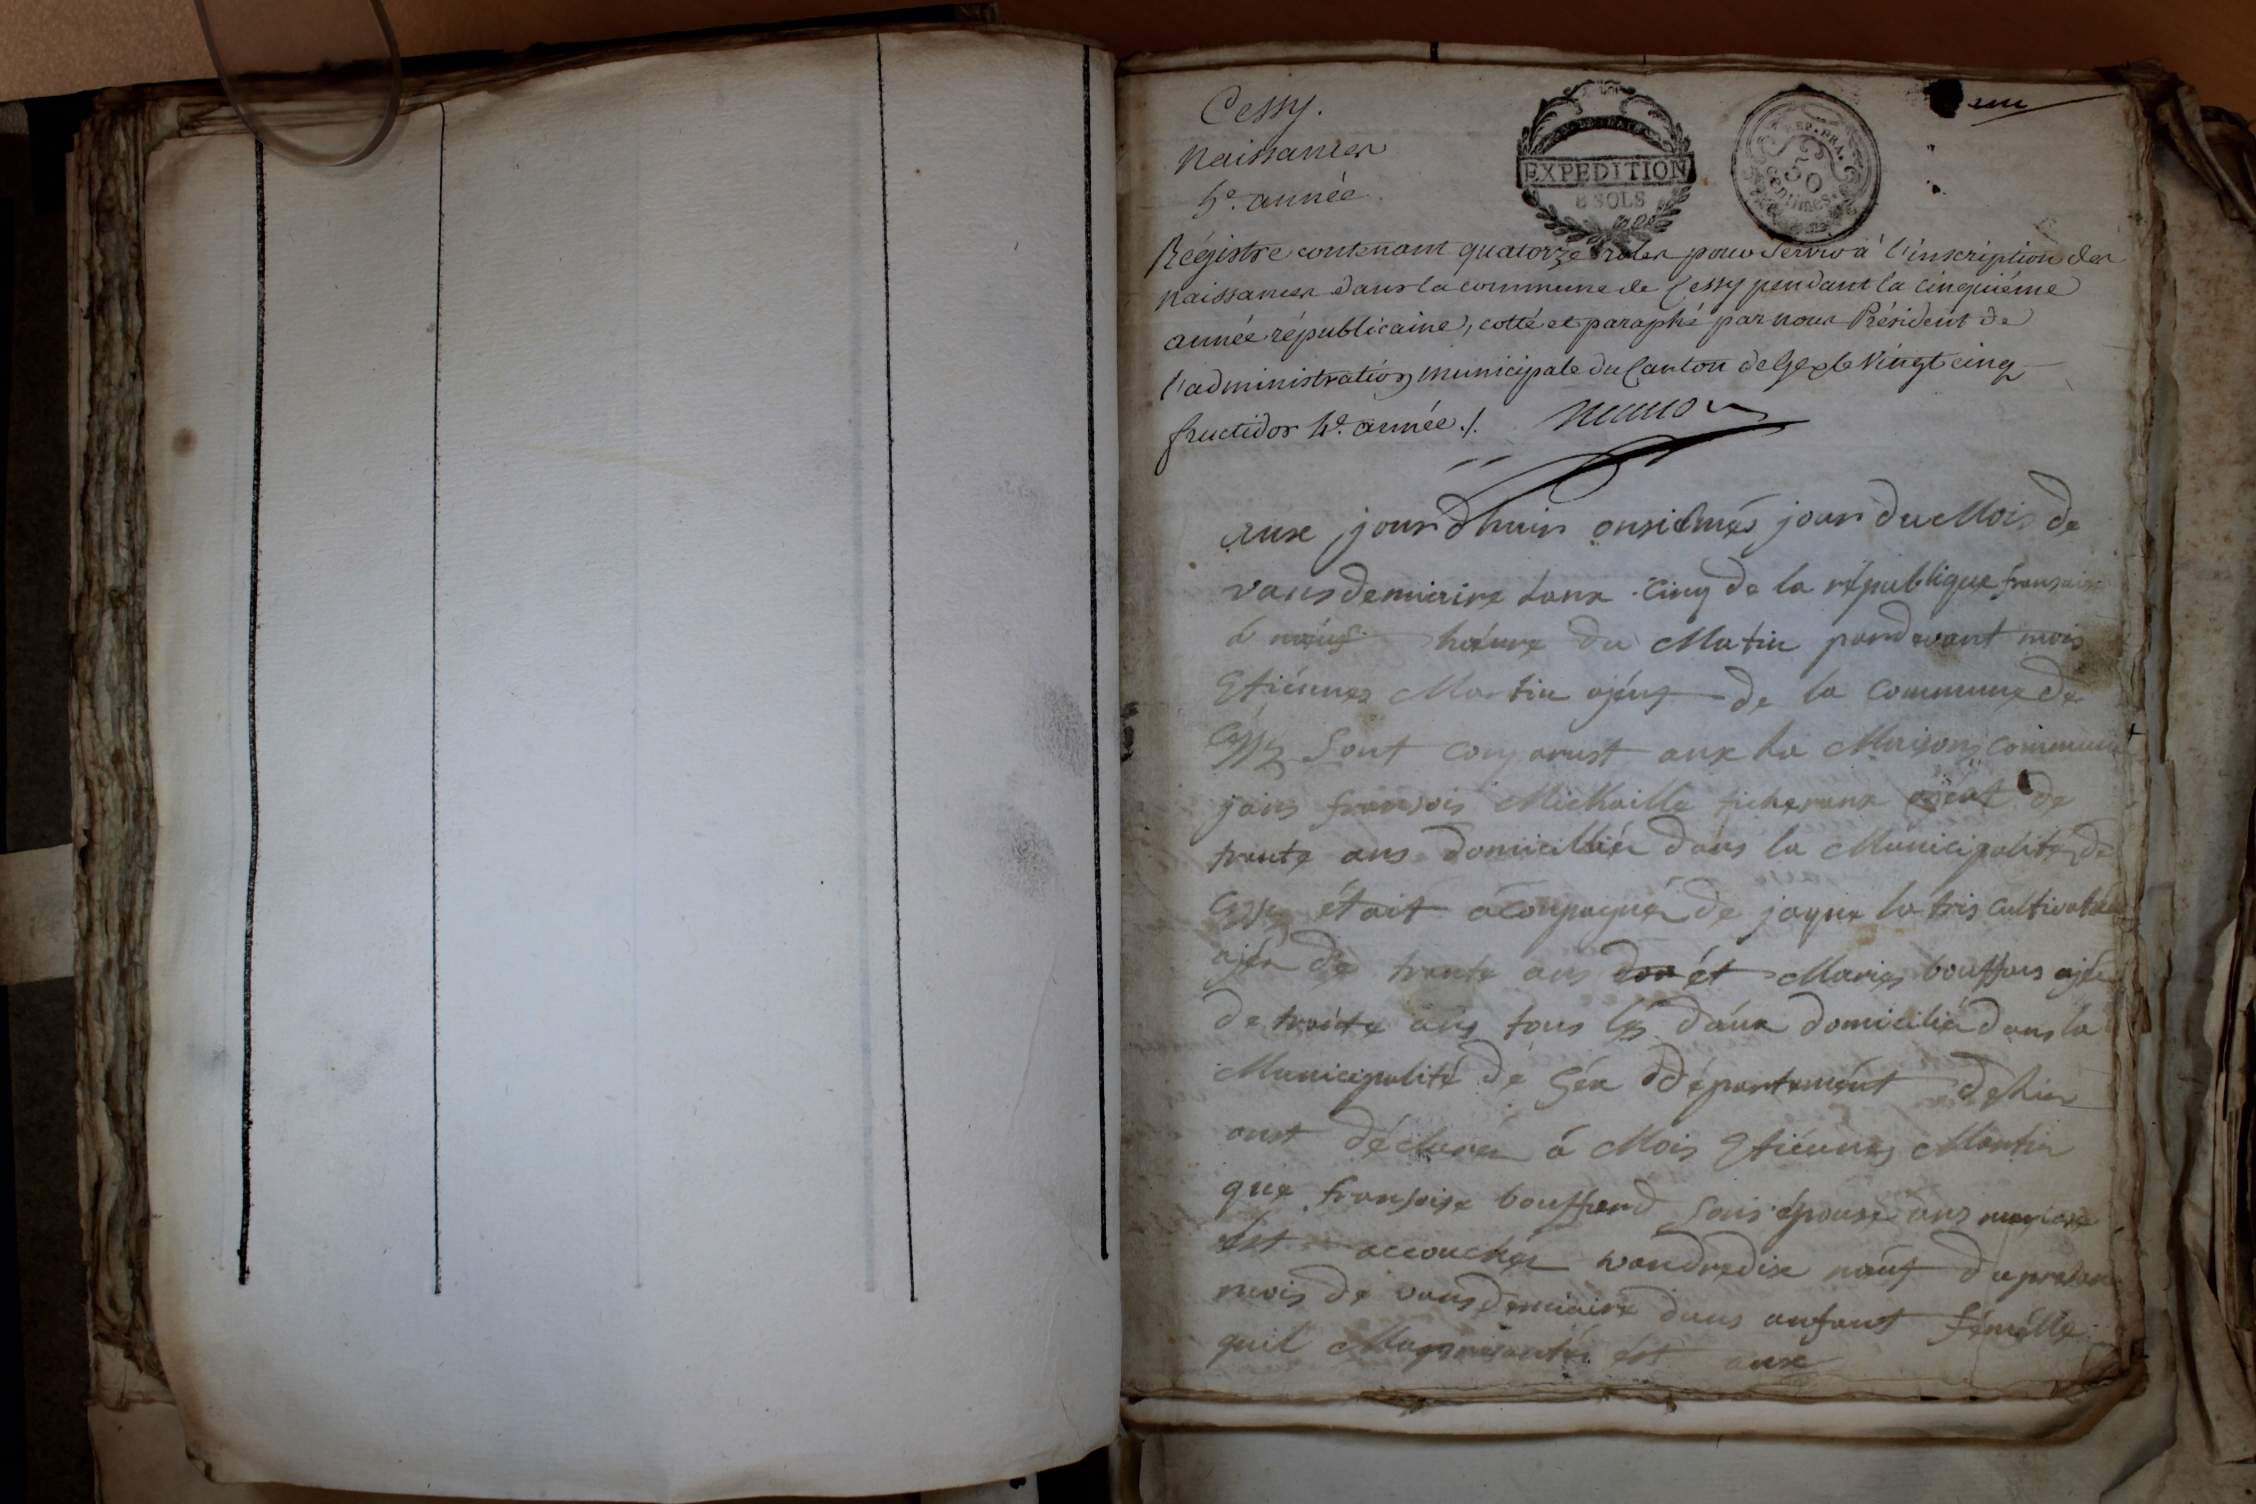 Cessy.
Naissances
5e. année.
EXPEDITION
8 SOLS
REP. FRA.
50
centimes
Régistre contenant quatorze roles pour servir à l'inscription des
naissances dans la commune de Cessy pendant la cinquiéme
année républicaine, cotté et paraphé par nous Président de
l'administration municipale du Canton de Gex le Vingt cinq
fructidor 4e. année ./.
aux jourdhuis onsiémes jour du Mois de
vansdemiaire lanx cinq de la république fransaise
à neuf haeure du Matin pardevant mois
Etiénnes Martin ajént de la Commune de
Céssy Sont comparust aux la Maisons Commune
jans fransois Mickaille de
trante ans domicilliés dans la Municipalité de
Cessy était acompagnés de jaque la tris Cultivateur
ajés de trante ans et Maries bouffars ajés
de trante ans tous lés daux domiciliés dans la
Municipalité de Géx département
onst déclarés à Mois Etiénnes Martin
que fransoise bouffard Sons épouse ans mariaxe
ést accouchés vandredix nauf du présant
mois de vansdemiaire dans anfant fémélle
quil Mapprésantés ést aux